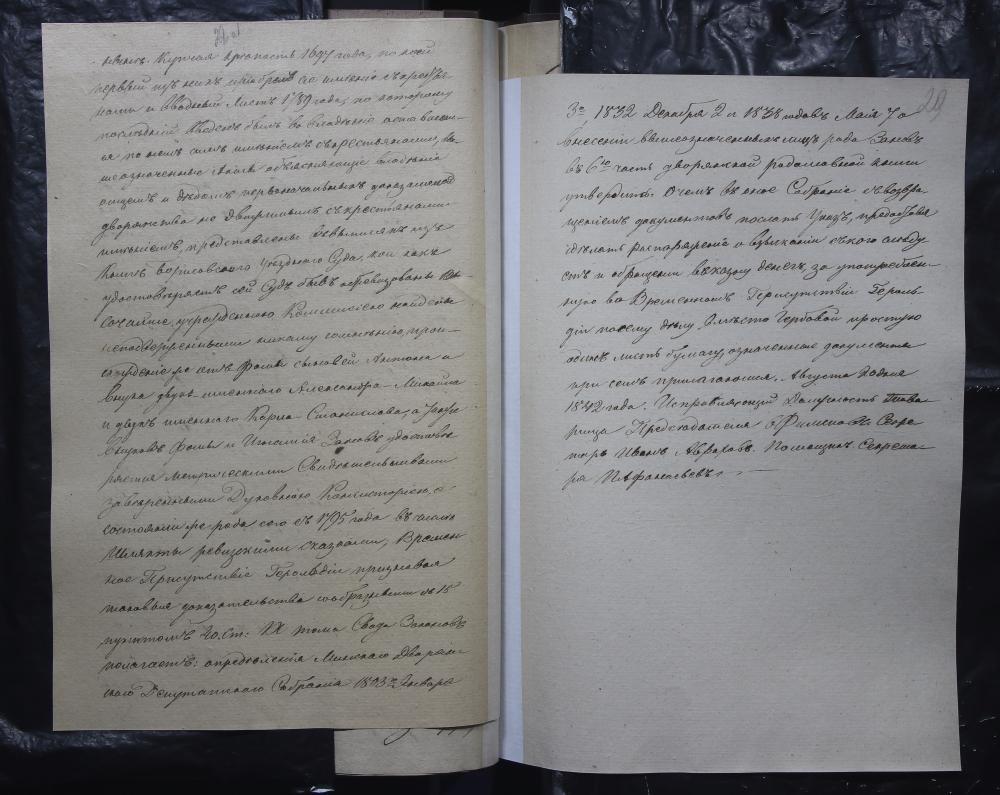 Купчая крѣпость 1697 года, по коей
первый изъ нихъ приобрелъ се имѣніе съ крестья-
нами и вводный Листъ 1789 года, по которому
послѣдній введенъ былъ во владѣніе
по немъ симъ имѣніемъ съ крестьянами,
шеозначенные Акты объясняющіе владѣніе
отцемъ и дѣдомъ первоначальныхъ доказателей
дворянства не движимымъ съ крестьянами
имѣніемъ, представлены въ выписяхъ изъ
Книгъ Борисовскаго Уѣзднаго Суда, кои какъ
удостовѣряетъ сей Судъ бывъ
сочайше учрежденною Комисіею найдены
неподверженными никакому сомнѣнію, прои-
схожденіе же отъ Фомы сыновей Антона и
внука двухъ-имяннаго Александра-Михаила
и двухъ имяннаго Карла-Станислава, а
внуковъ Фомы и Игнатія Заковъ удостовѣ-
ряется метрическими Свидѣтельствами
завѣренными Духовною Консисторіею, а
состояніе же рода сего съ 1795 года въ числѣ
Шляхты ревизскими сказками, Времен-
ное Присутствіе Герольдіи признавая
таковыя доказательства сообразными съ 15
пунктомъ 40. Ст: IX тома Свода Законовъ
полагаетъ: опредѣленія Минскаго Дворян-
скаго Депутатскаго Собранія 1803го Января
29
3го 1832 Декабря 2 и 1838 годовъ Маія 7 о
внесеніи вышеозначенныхъ лицъ рода Заковъ
въ 6ю часть дворянской родословной книги
утвердить. О чемъ въ оное Собраніе съ возвра-
щеніемъ документовъ послать Указъ, предоставя
сдѣлать распоряженіе о взысканіи съ кого слѣду-
етъ и обращеніи въ казну денегъ, за употреблен-
ную во Временномъ Присутствіи Героль-
діи по сему дѣлу вмѣсто Гербовой простую
одинъ листъ бумагу, означенные документы
при семъ прилагаются. Августа дня
1842 года. Исправляющій Должность Това-
рища Предсѣдателя Секре-
тарь Иванъ Помощникъ Секрета-
ря